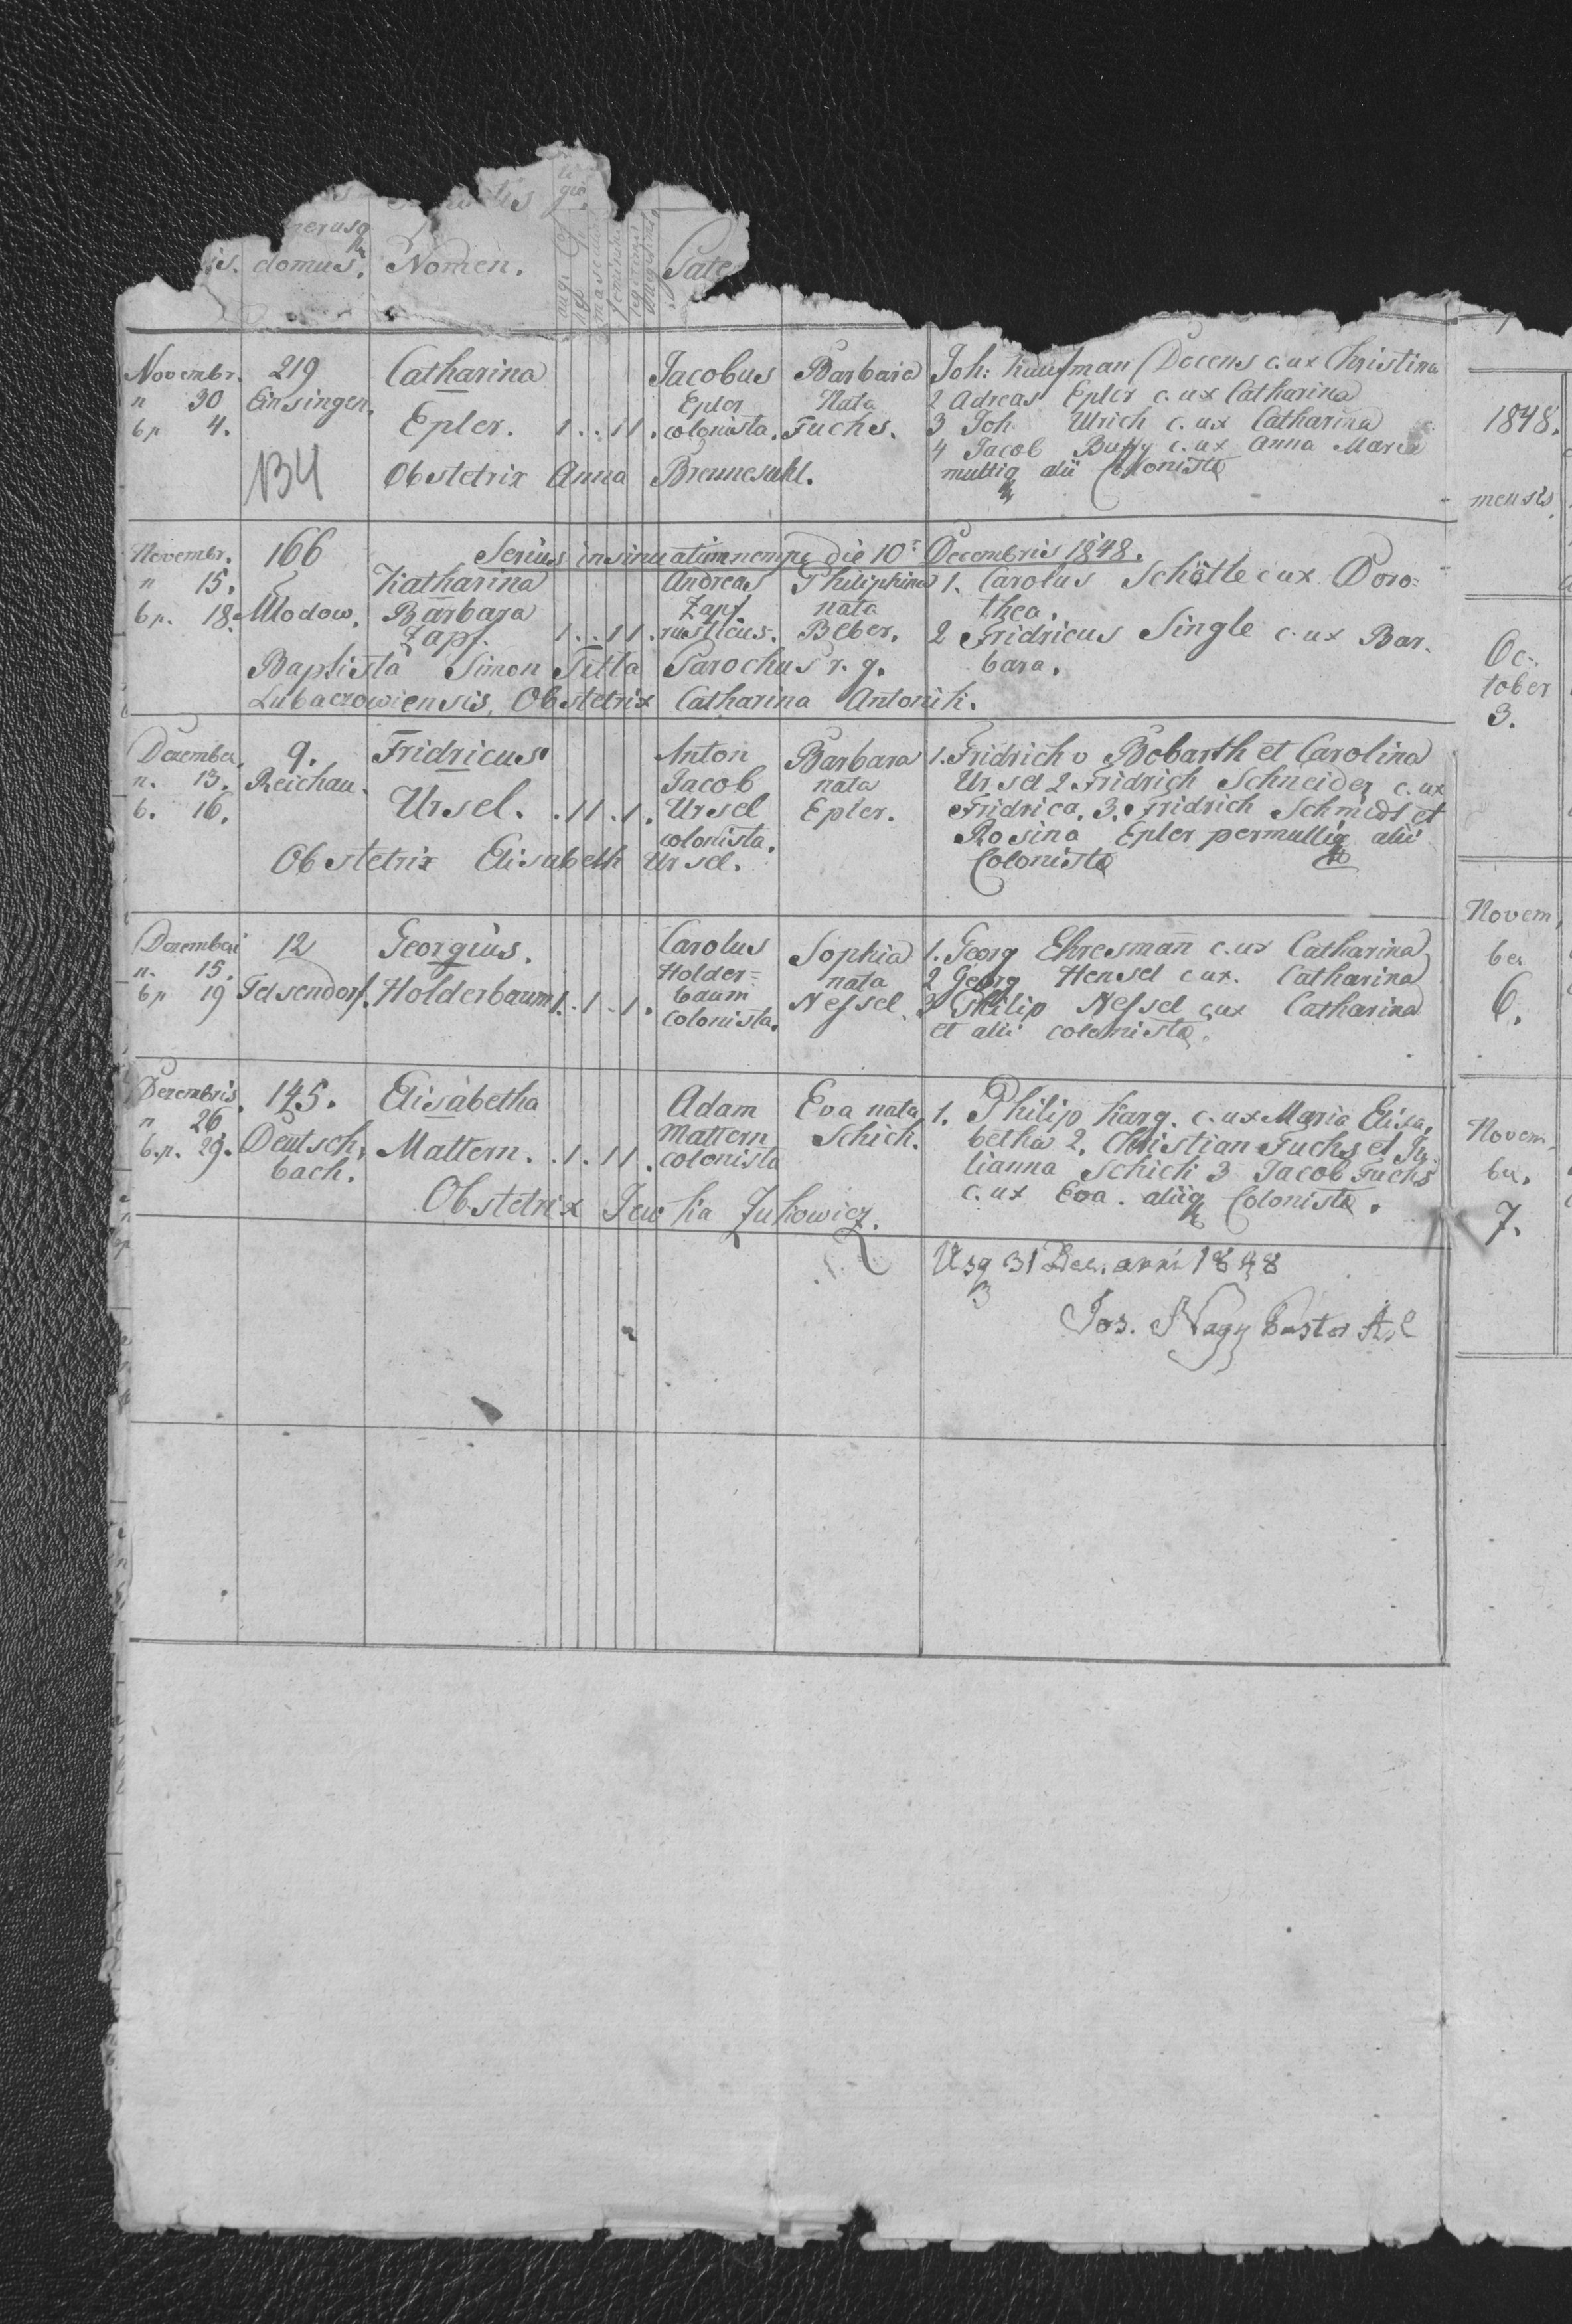 nerusq
domus. Nomen. Pate
Novembr. 219 Catharina Jacobus Barbara Joh: Kaufman Docens c. ux Christina
n 30 Einsingen. Epler Nata 2 Adreas Epler c. ux Catharina
bp 4. Epler. 1 . . 1 1 . colonista. Fuchs. 3 Joh. Ulrich c. ux Catharina
4 Jacob Buffy c. ux Anna Maria
134 Obstetrix Anna Brennestuhl. multiq alii Colonistæ
Novembr. 166 Serius insinuatim nempe die 10 Decembris 1848.
n 15. Katharina Andreas Philiphina 1. Carolus Schötle c ux Doro=
bp. 18. Mlodow. Barbara Zapf nata thea.
Zapf. 1 . . 1 1 . rusticus. Beber. 2 Fridricus Single c. ux Bar.
Baptista Simon Titla Parochus r. g. bara.
Lubaczowiensis, Obstetrix Catharina Antonik.
Dezember 9. Fridricus Anton Barbara 1. Fridrich v Bobarth et Carolina
n. 13. Reichau. Jacob nata Ursel 2 Fridrich Schneider c. ux
b. 16. Ursel. . 1 1 . 1 . Ursel Epler. Fridrica. 3. Fridrich Schmidt et
colonista. Rosina Epler permultiq alii
Obstetrix Elisabeth Ursel. Colonistæ
Dezember 12 Georgius. Carolus Sophia 1. Georg Ehresmañ c. ux Catharina
n. 15. Holder= nata 2 Georg Hensel c ux. Catharina
bp 19 Felsendorf. Holderbaum 1 . 1 . 1 . baum Nessel. 3 Philip Nessel c ux Catharina
colonista. et alii colonistæ.
Dezembris 145. Elisabetha Adam Eva nata 1. Philip Karg. c. ux Maria Elisa.
n 26. Deutsch. Mattern Schick. betha 2. Christian Fuchs et Ju
b.p. 29. bach. Mattern. . 1 . 1 1 . colonista lianna Schick 3 Jacob Fuchs
Obstetrix Jewka Zukowicz. c. ux Eva. aliiq Colonistæ.
Usq 31 Dec. anni 1848
Jos. Nagy Pastor
1848.
mensis
Oc-
tober
3.
Novem,
ber
6.
Novem
ber.
7.